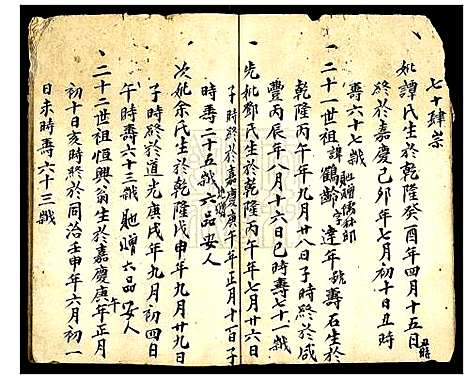 七十肆祟
妣譚氏生於乾隆癸酉年四月十五日丑時
終於嘉慶己卯年七月初十日丑時
壽六十七歲
二十一世祖諱鶴齡字達年號壽石生於
馳贈儒林郎
乾隆丙午年九月廿八日子時終於咸
豐丙辰年八月十六日巳時壽七十一歲
先妣鄧氏生於乾隆丙午年七月廿六日
子時終於嘉慶庚午年正月十一日子
時壽二十五歲馳贈六品安人
次妣余氏生於乾隆戊申年九月廿九日
子時終於道光庚戌年九月初四日
午時壽六十三歲馳贈六品安人
二十二世祖恒興翁生於嘉慶庚午年正月
初十日亥時終於同治壬申年六月初一
日未時壽六十三歲